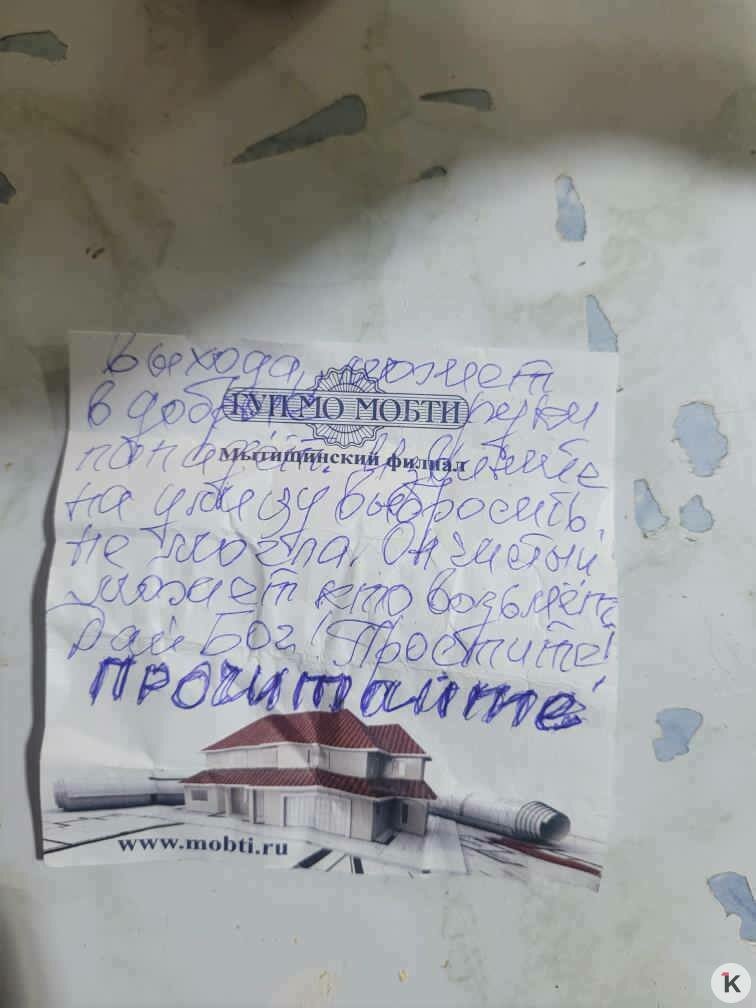 Выхода, может
в добрые руки
ГУП МО МОБТИ
Мытищинский филиал
попадёт. Извините
на улицу выбросить
не могла. Он чистый
может кто возьмёт
Дай Бог! Простите!
Прочитайте!
www.mobti.ru
K